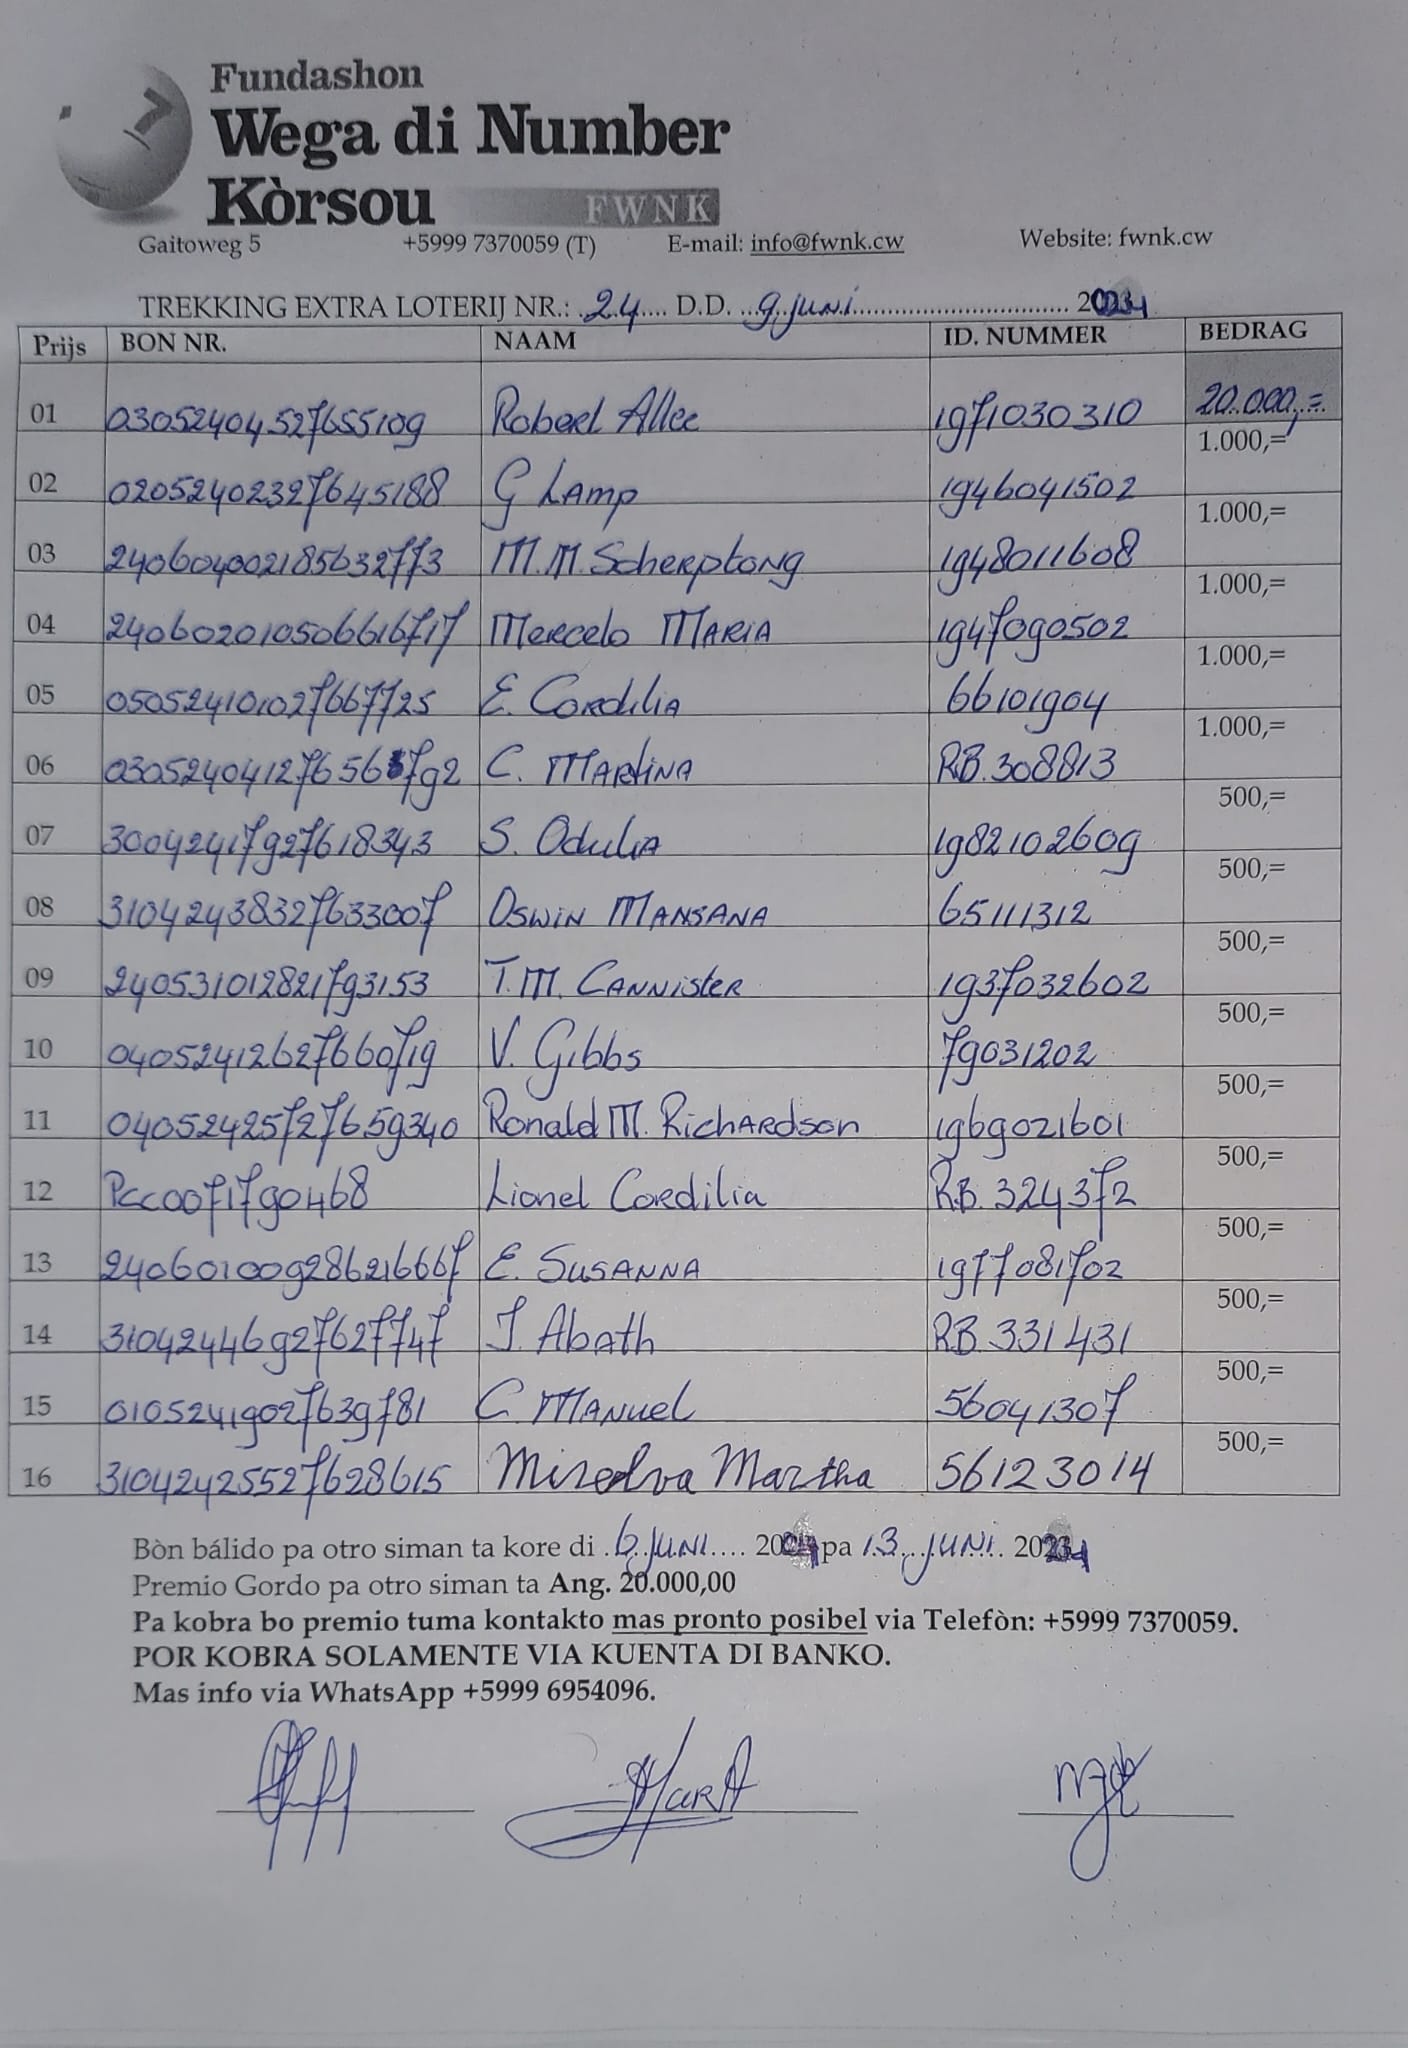 Fundashon
Wega di Number
Kòrsou FWNK
Gaitoweg 5 +5999 7370059 (T) E-mail: info@fwnk.cw Website: fwnk.cw
TREKKING EXTRA LOTERIJ NR.: .24.... D.D. ...9 juni.................................... 2024
Prijs BON NR. NAAM ID. NUMMER BEDRAG
01 03052404527655109 Robert Allee 1971030310 20.000,=
1.000,=
02 02052402327645188 G Lamp 1946041502
1.000,=
03 240601002185632773 M.M. Scherptong 1948011608
1.000,=
04 240602010506616717 Marcelo MARIA 1947090502
1.000,=
05 050524101027667725 E. Cordilia 66101904
1.000,=
06 03052404127656792 C. MARtiNA RB.308813
500,=
07 30042417927618343 S. Odulia 1982102609
500,=
08 31042438327633007 OSWIN MANSANA 65111312
500,=
09 240531012821793153 T.M. CANNISTER 1937032602
500,=
10 04052412627660719 V. Gibbs 79031202
500,=
11 04052425727659340 Ronald M. RicHARDson 1969021601
500,=
12 Pcc0071790468 Lionel Cordilia RB. 324372
500,=
13 240601009286216667 E. SUSANNA 1977081702
500,=
14 31042446927627747 J. Abath RB.331431
500,=
15 01052419027639781 C. MANUEL 56041307
500,=
16 31042425527628615 Minelva Martha 56123014
Bòn bálido pa otro siman ta kore di .6 JUNI.... 2024 pa 13 JUNI. 2024
Premio Gordo pa otro siman ta Ang. 20.000,00
Pa kobra bo premio tuma kontakto mas pronto posibel via Telefòn: +5999 7370059.
POR KOBRA SOLAMENTE VIA KUENTA DI BANKO.
Mas info via WhatsApp +5999 6954096.